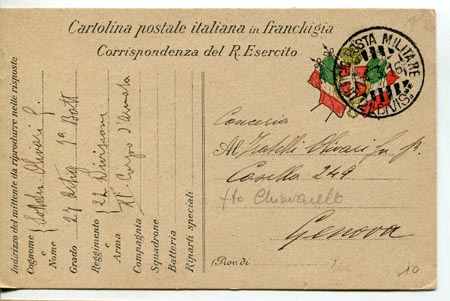 Cartolina postale italiana in franchigia
Corrispondenza del R. Esercito
POSTA MILITARE
DIVIS.
Indirizzo del mittente da riprodurre nelle risposte
Cognome e Nome
Olivari G.
Grado
Reggimento e Arma
22 Divisione
Compagnia
XI Corpo d'Armata
Squadrone
Batteria
Riparti speciali
Conceria
Al Fratelli Olivari fu
Casella 249
Genova
(Prov. di )
10